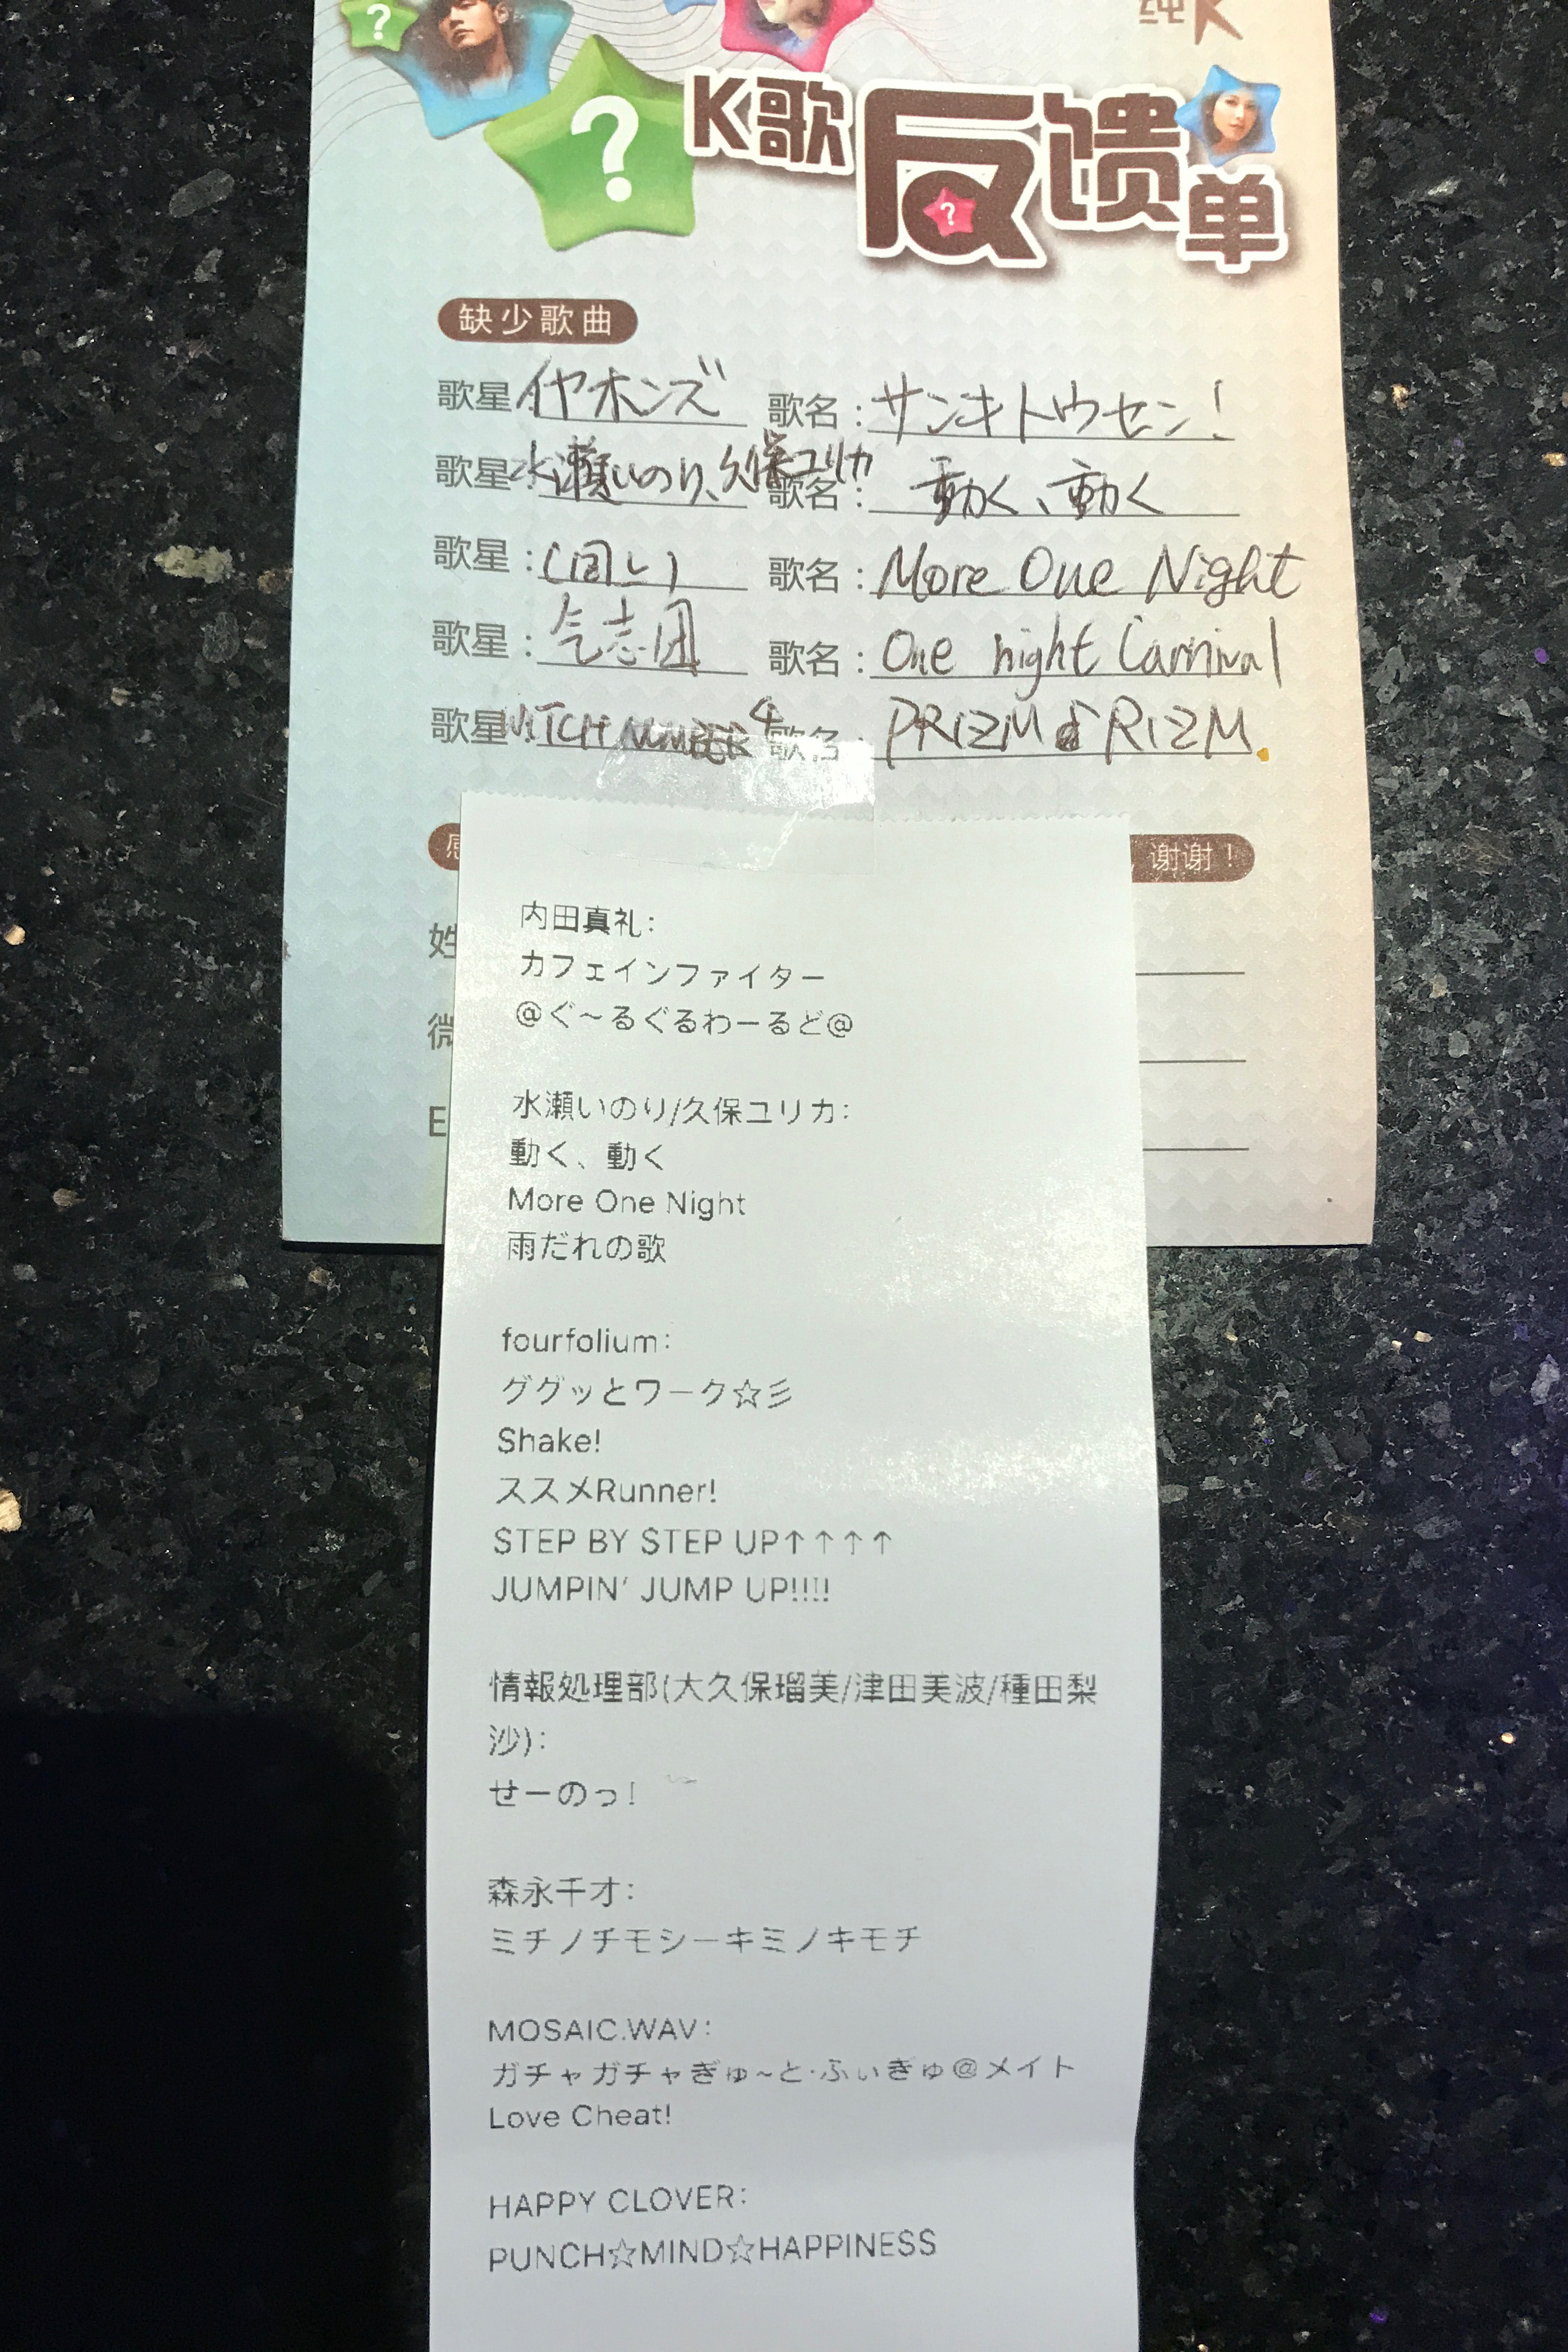 ?
纯K
K歌反馈单
?
?
缺少歌曲
歌星 イヤホンズ 歌名：サンキトウセン！
歌星：水瀬いのり、久保ユリカ 歌名：動く、動く
歌星：(同上) 歌名：More One Night
歌星：氣志團 歌名：One night Carnival
歌星 WITCH NUMBER 4 歌名：PRIZM♪RIZM
感 谢谢！
姓
微
E
内田真礼:
カフェインファイター
@ぐ～るぐるわーるど@
水瀬いのり/久保ユリカ:
動く、動く
More One Night
雨だれの歌
fourfolium:
ググッとワーク☆彡
Shake!
ススメRunner!
STEP BY STEP UP↑↑↑↑
JUMPIN' JUMP UP!!!!
情報処理部(大久保瑠美/津田美波/種田梨
沙):
せーのっ!
森永千才:
ミチノチモシーキミノキモチ
MOSAIC.WAV:
ガチャガチャきゅ~と・ふぃぎゅ@メイト
Love Cheat!
HAPPY CLOVER:
PUNCH☆MIND☆HAPPINESS